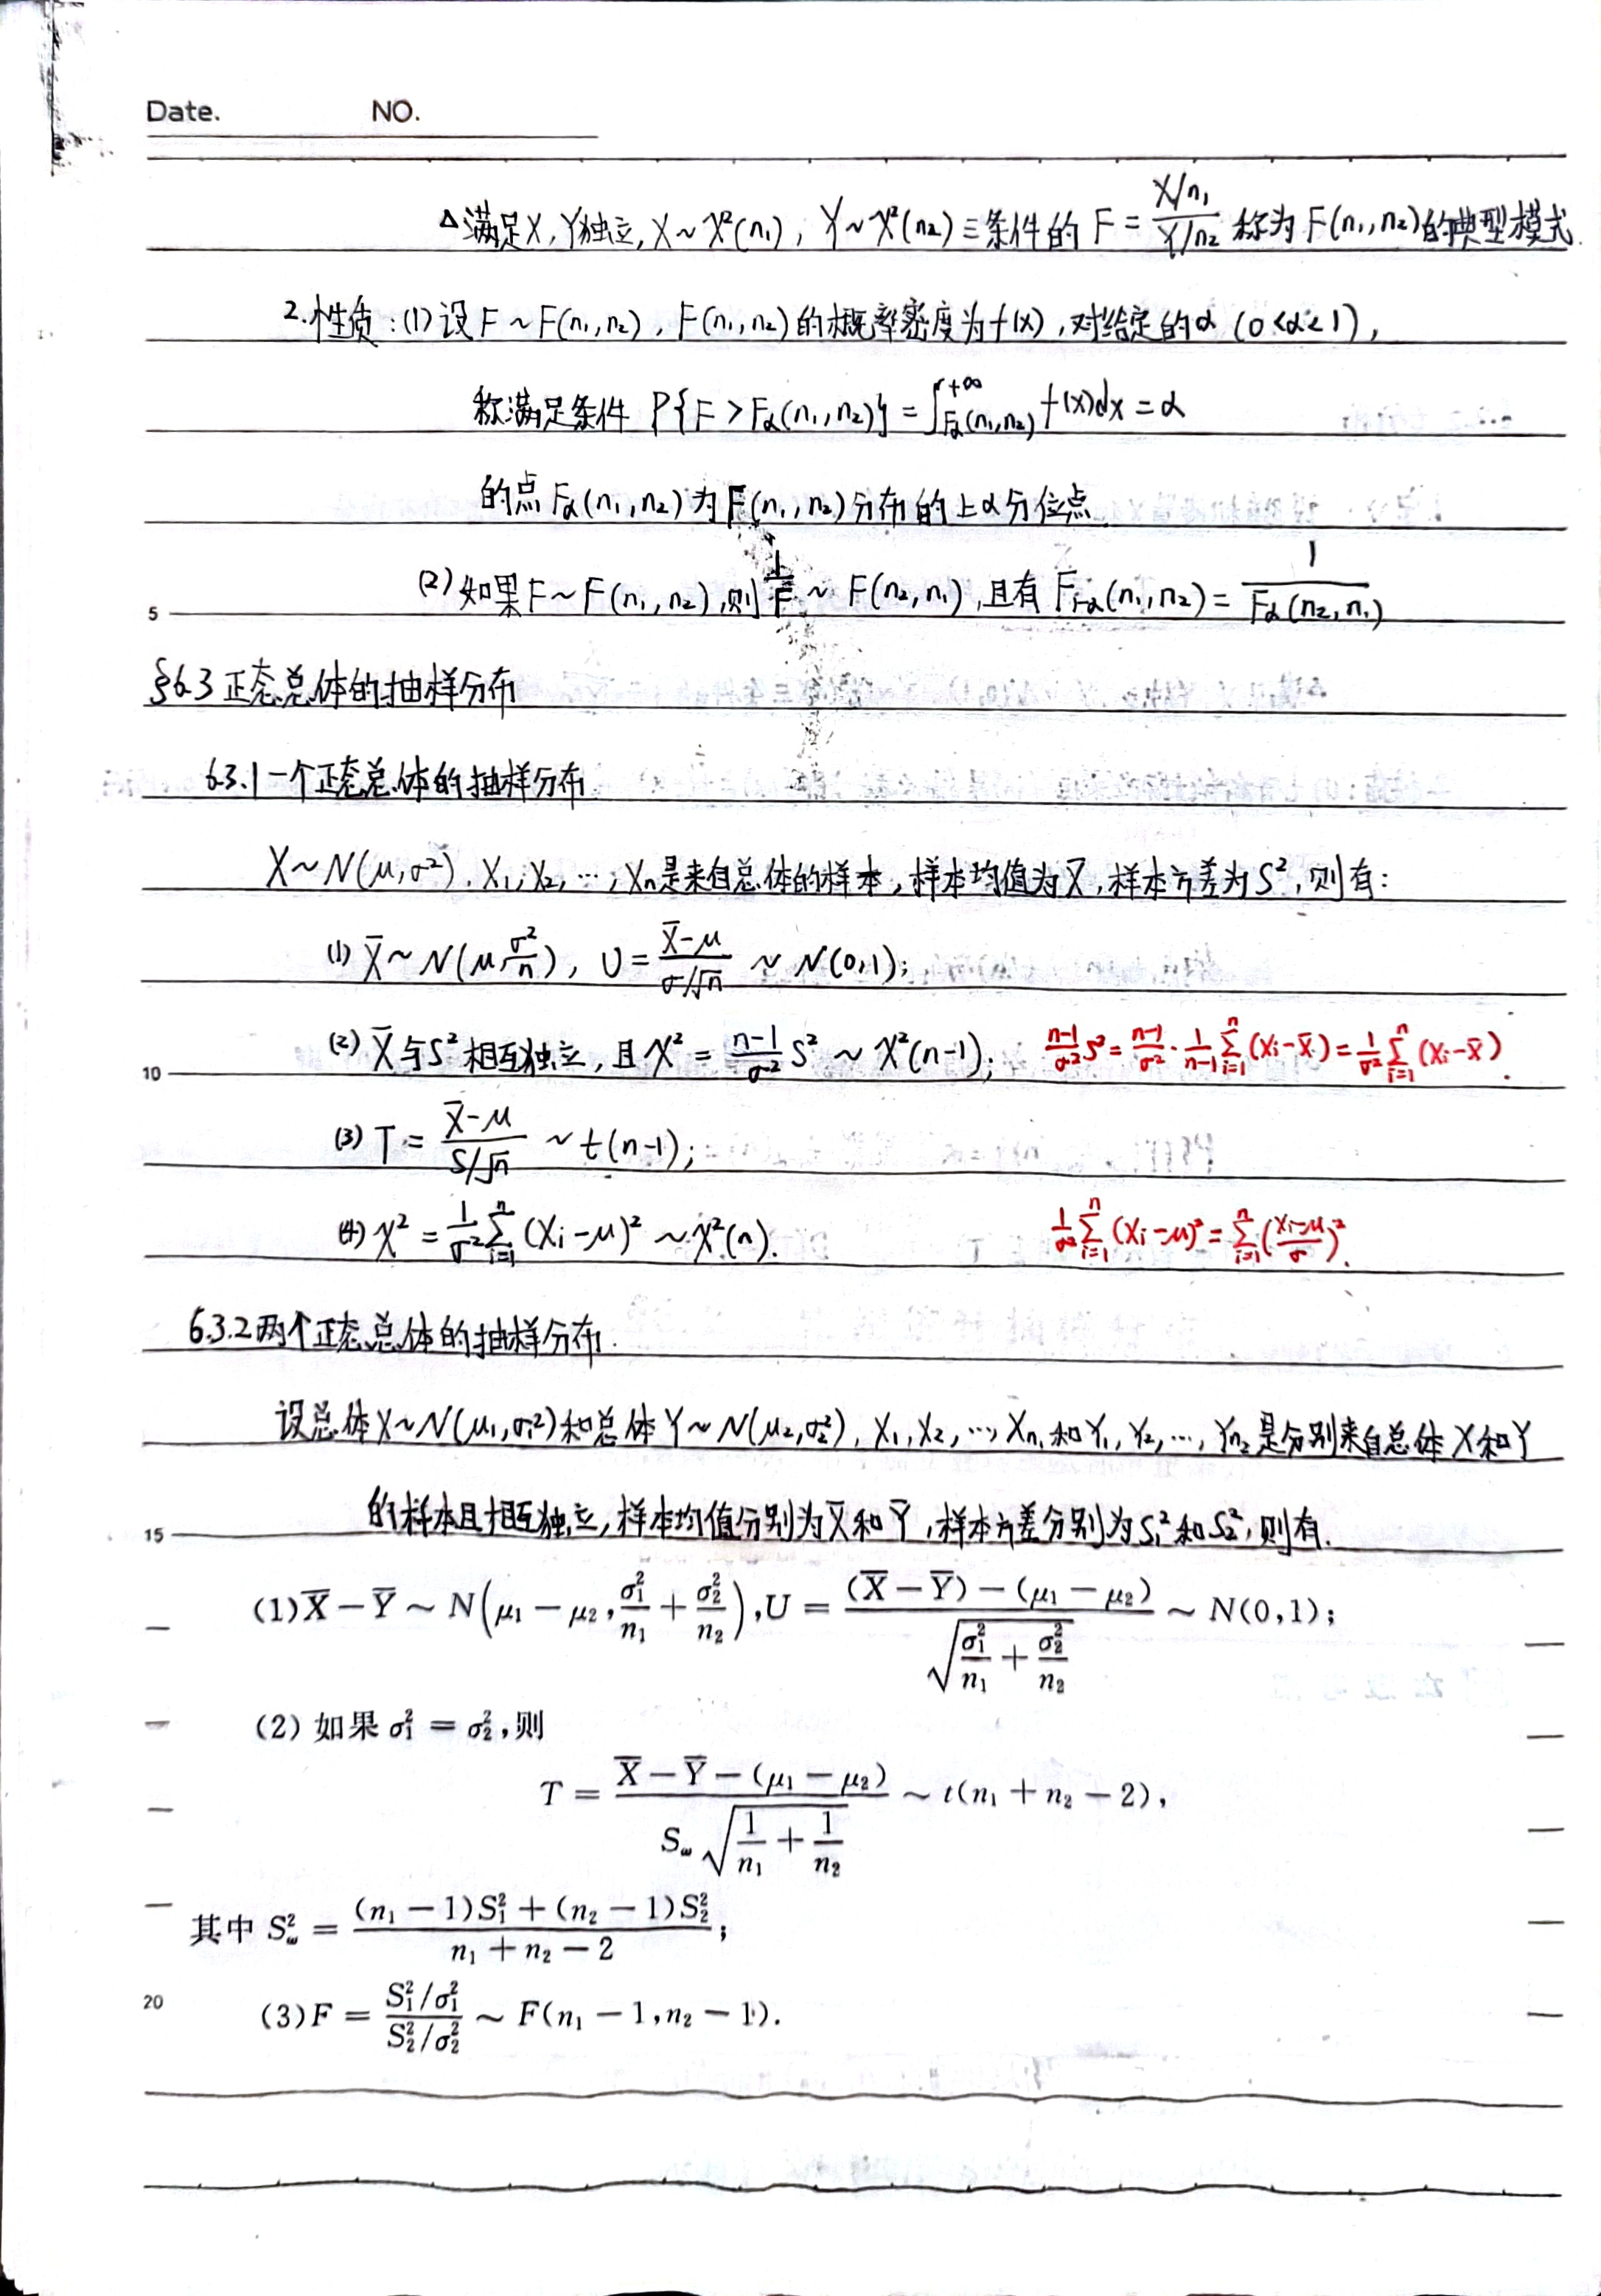 Date. NO.
△满足X,Y独立,X~χ²(n₁),Y~χ²(n₂)三条件的 F = (X/n₁)/(Y/n₂) 称为F(n₁,n₂)的典型模式.
2.性质:(1)设F~F(n₁,n₂),F(n₁,n₂)的概率密度为f(x),对给定的α(0<α<1),
称满足条件 P{F>Fα(n₁,n₂)} = ∫_{Fα(n₁,n₂)}^{+∞} f(x)dx = α
的点Fα(n₁,n₂)为F(n₁,n₂)分布的上α分位点.
5
(2)如果F~F(n₁,n₂),则 1/F ~ F(n₂,n₁),且有 F₁₋α(n₁,n₂) = 1/Fα(n₂,n₁)
§6.3正态总体的抽样分布
6.3.1一个正态总体的抽样分布.
X~N(μ,σ²).X₁,X₂,…,Xn是来自总体的样本,样本均值为X̄,样本方差为S²,则有:
(1) X̄~N(μ,σ²/n), U = (X̄-μ)/(σ/√n) ~ N(0,1);
10
(2) X̄与S²相互独立,且χ² = (n-1)/σ² S² ~ χ²(n-1); (n-1)/σ² S² = (n-1)/σ² · 1/(n-1) Σ_{i=1}^{n} (Xi-X̄) = 1/σ² Σ_{i=1}^{n} (Xi-X̄).
(3) T = (X̄-μ)/(S/√n) ~ t(n-1);
(4) χ² = 1/σ² Σ_{i=1}^{n} (Xi-μ)² ~ χ²(n). 1/σ² Σ_{i=1}^{n} (Xi-μ)² = Σ_{i=1}^{n} ((Xi-μ)/σ)².
6.3.2两个正态总体的抽样分布.
设总体X~N(μ₁,σ₁²)和总体Y~N(μ₂,σ₂²),X₁,X₂,…,Xn₁和Y₁,Y₂,…,Yn₂是分别来自总体X和Y
15
的样本且相互独立,样本均值分别为X̄和Ȳ,样本方差分别为S₁²和S₂²,则有.
(1) X̄ − Ȳ ~ N(μ₁ − μ₂, σ₁²/n₁ + σ₂²/n₂), U = ((X̄ − Ȳ) − (μ₁ − μ₂))/√(σ₁²/n₁ + σ₂²/n₂) ~ N(0,1);
(2) 如果 σ₁² = σ₂²,则
T = (X̄ − Ȳ − (μ₁ − μ₂))/(Sω √(1/n₁ + 1/n₂)) ~ t(n₁ + n₂ − 2),
其中 Sω² = ((n₁ − 1)S₁² + (n₂ − 1)S₂²)/(n₁ + n₂ − 2);
20
(3) F = (S₁²/σ₁²)/(S₂²/σ₂²) ~ F(n₁ − 1, n₂ − 1).